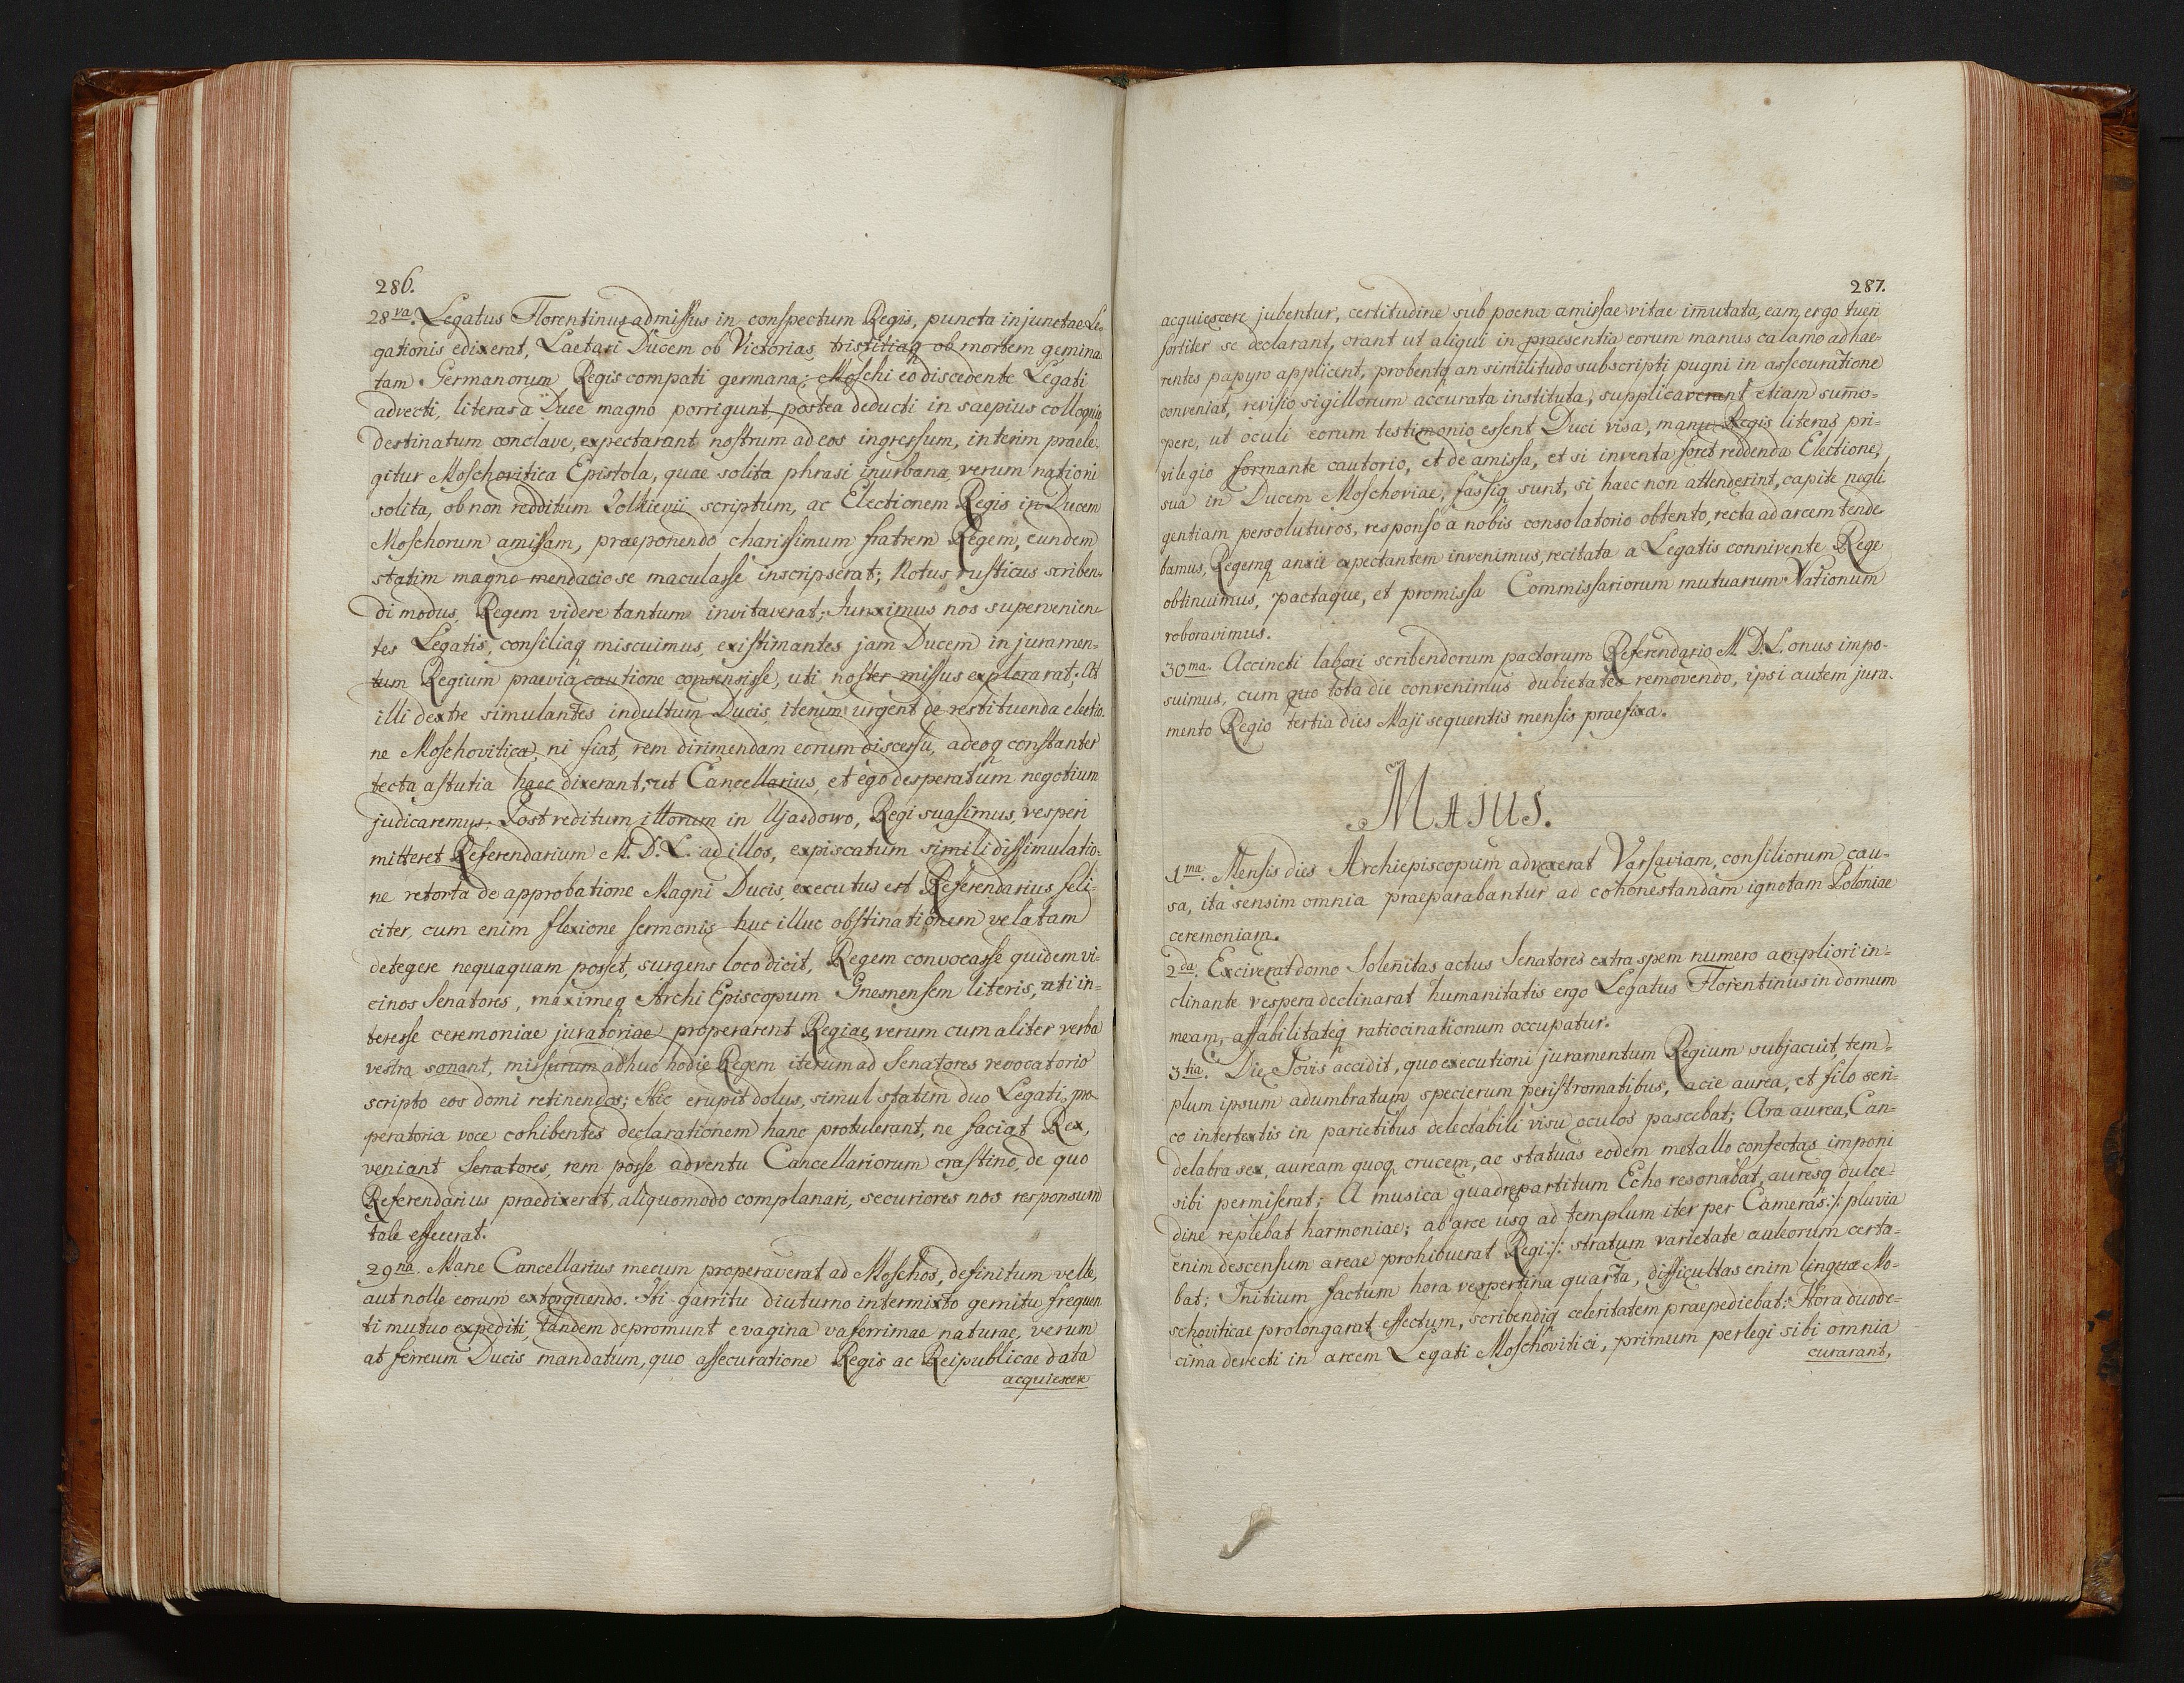 286.
28va. Legatus Florentinus admissus in conspectum Regis, puncta injunctae Le-
gationis edixerat, Laetari Ducem ob Victorias, tristitiaq ob mortem gemina
tam Germanorum Regis compati germana; Moschi eo discedente Legati
advecti, literas a Duce magno porrigunt, postea deducti in saepius colloquio
destinatum conclave, expectarant nostrum ad eos ingressum, interim praele-
gitur Moschovitica Epistola, quae solita phrasi inurbana, verum nationi
solita, ob non redditum Zolkievii scriptum, ac Electionem Regis in Ducem
Moschorum amissam, praeponendo charissimum fratrem Regem, eundem
statim magno mendacio se maculasse inscripserat; Notus rusticus scriben-
di modus, Regem videre tantum invitaverat; Iunximus nos supervenien-
tes Legatis, consiliaq miscuimus, existimantes jam Ducem in juramen-
tum Regium praevia cautione consensisse, uti noster missus explorarat; At
illi dextre simulantes indultum Ducis, iterum urgent de restituenda electio-
ne Moschovitica, ni fiat, rem dirimendam eorum discessu, adeoq constanter
tecta astutia haec dixerant, ut Cancellarius, et ego desperatum negotium
judicaremus; Post reditum illorum in Ujasdowo, Regi suasimus, vesperi
mitteret Referendarium M. D. L. ad illos, expiscatum simili dissimulatio-
ne retorta de approbatione Magni Ducis, executus est Referendarius feli-
citer, cum enim flexione sermonis huc illuc obstinationem velatam
detegere nequaquam posset, surgens loco dicit, Regem convocasse quidem vi-
cinos Senatores, maximeq Archi Episcopum Gnesnensem literis, uti in-
teresse ceremoniae juratoriae properarent Regiae, verum cum aliter verba
vestra sonant, missurum adhuc hodie Regem iterum ad Senatores revocatorio
scripto eos domi retinendos; Hic erupit dolus, simul statim duo Legati, pro-
peratoria voce cohibentes declarationem hanc protulerant, ne faciat Rex,
veniant Senatores, rem posse adventu Cancellariorum crastino, de quo
Referendarius praedixerat, aliquomodo complanari, securiores nos responsum
tale effecerat.
29na. Mane Cancellarius mecum properaverat ad Moschos, definitum velle,
aut nolle eorum extorquendo. Ibi garritu diuturno intermixto gemitu frequen
ti mutuo expediti, tandem depromunt e vagina vaferrimae naturae, verum
at ferreum Ducis mandatum, quo assecuratione Regis ac Reipublicae data
acquiescere
287.
acquiescere jubentur, certitudine sub poena amissae vitae im̃utata, eam ergo tueri
fortiter se declarant, orant ut aliqui in praesentia eorum manus calamo adhae-
rentes papyro applicent, probentq an similitudo subscripti pugni in assecuratione
conveniat, revisio sigillorum accurata instituta, supplicaverant etiam sum̃o-
pere, ut oculi eorum testimonio essent Duci visa, manu Regis literas pri-
vilegio formante cautorio, et de amissa, et si inventa foret reddenda Electione,
sua in Ducem Moschoviae, fassiq sunt, si haec non attenderint, capite negli
gentiam persoluturos, responso a nobis consolatorio obtento, recta ad arcem tende-
bamus, Regemq anxie expectantem invenimus, recitata a Legatis connivente Rege
obtinuimus, pactaque, et promissa Commissariorum mutuarum Nationum
roboravimus.
30ma. Accincti labori scribendorum pactorum Referendario M. D. L. onus impo-
suimus, cum quo tota die convenimus dubietates removendo, ipsi autem jura-
mento Regio tertia dies Maji sequentis mensis praefixa.
MAJUS.
1ma. Mensis dies Archiepiscopum advexerat Varsaviam, consiliorum cau-
sa, ita sensim omnia praeparabantur ad cohonestandam ignotam Poloniae
ceremoniam.
2da. Exciverat domo Solen̄itas actus Senatores extra spem numero ampliori in-
clinante vespera declinarat humanitatis ergo Legatus Florentinus in domum
meam, affabilitateq ratiocinationum occupatur.
3tia. Die Jovis accidit, quo executioni juramentum Regium subjacuit, tem-
plum ipsum adumbratum specierum peristromatibus, acie aurea, et filo seri-
co intertextis in parietibus delectabili visu oculos pascebat; Ara aurea, Can-
delabra sex, auream quoq crucem, ac statuas eodem metallo confectas imponi
sibi permiserat; A musica quadrepartitum Echo resonabat, auresq dulce-
dine replebat harmoniae; ab arce usq ad templum iter per Cameras :/: pluvia
enim descensum areae prohibuerat Regi :/: stratum varietate auleorum certa-
bat; Initium factum hora vespertina quarta, difficultas enim linguae Mo-
schoviticae prolongarat effectum, scribendiq celeritatem praepediebat: Hora duode-
cima devecti in arcem Legati Moschovitici, primum perlegi sibi omnia
curarant,